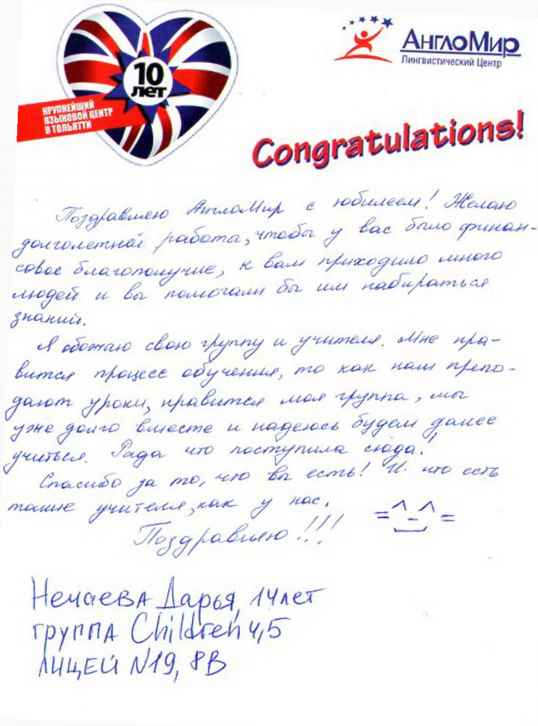 10
ЛЕТ
КРУПНЕЙШИЙ
ЯЗЫКОВОЙ ЦЕНТР
В ТОЛЬЯТТИ
АнглоМир
Лингвистический Центр
Congratulations!
Поздравляю АнглоМир с юбилеем! Желаю
долголетной работа, чтобы у вас было финан-
совое благополучие, к вам приходило много
людей и вы помогали бы им набираться
знаний.
Я обожаю свою группу и учителя. Мне нра-
вится процесс обучения, то как нам препо-
дают уроки, нравится моя группа, мы
уже долго вместе и надеюсь будем далее
учиться. Рада что поступила сюда!
Спасибо за то, что вы есть! И что есть
такие учителя, как у нас.
Поздравляю!!! =^_^=
Нечаева Дарья, 14 лет
группа Children 4,5
Лицей №19, 8В